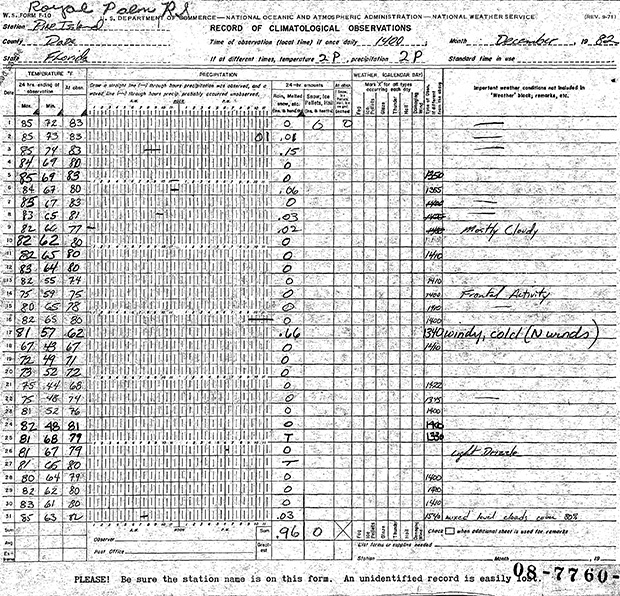 Royal Palm RS
W.S. FORM F-10 U.S. DEPARTMENT OF COMMERCE—NATIONAL OCEANIC AND ATMOSPHERIC ADMINISTRATION—NATIONAL WEATHER SERVICE (REV. 9-71)
Station Pine Island RECORD OF CLIMATOLOGICAL OBSERVATIONS
County Dade Time of observation (local time) if once daily 1400 Month December 19 82
State Florida If at different times, temperature 2P, precipitation 2P Standard time in use
TEMPERATURE °F PRECIPITATION WEATHER (CALENDAR DAY)
24 hrs. ending at observation At obsn. Draw a straight line (—) through hours precipitation was observed, and a waved line through hours precip. probably occurred unobserved. 24-hr. amounts At obsn. Mark 'X' for all types occurring each day Important weather conditions not included in "Weather" block, remarks, etc.
Date Max. Min. A.M. NOON P.M. Rain, Melted snow, etc. Fog Ice Pellets Glaze Thunder Hail Damaging Wind
1 85 72 83 0 0 0
2 85 73 83 .01
3 85 74 83 .15
4 84 69 80 0
5 85 69 83 0 1350
6 84 67 80 .06 1355
7 83 67 83 0 1400
8 83 65 81 .03
9 82 66 77 .02 Mostly Cloudy
10 82 62 80 0
11 82 65 80 0 1410
12 83 64 80 0
13 82 55 74 0 1410
14 75 59 75 0 1400 Frontal Activity
15 80 65 78 0 1410
16 82 65 80 0 1400
17 81 57 62 .66 1340 windy, cold (N winds)
18 67 43 67 0 1410
19 72 49 71 0
20 73 52 72 0
21 75 44 68 0 1422
22 75 48 74 0 1375
23 81 52 76 0 1400
24 82 48 81 0 1400
25 81 68 79 T 1330
26 81 67 79 0 Light Drizzle
27 81 65 80 T
28 80 64 79 0 1400
29 82 62 80 0 1420
30 83 61 80 0 1410
31 85 63 82 .03 1540 mixed level clouds cover 80%
Sum A.M. NOON P.M. Sum .96 0 X Fog Ice Pellets Glaze Thunder Hail Damaging Wind Check when additional sheet is used for remarks
Observer
Post Office List forms or supplies needed
Station Month 19
PLEASE! Be sure the station name is on this form. An unidentified record is easily lost. 08-7760-